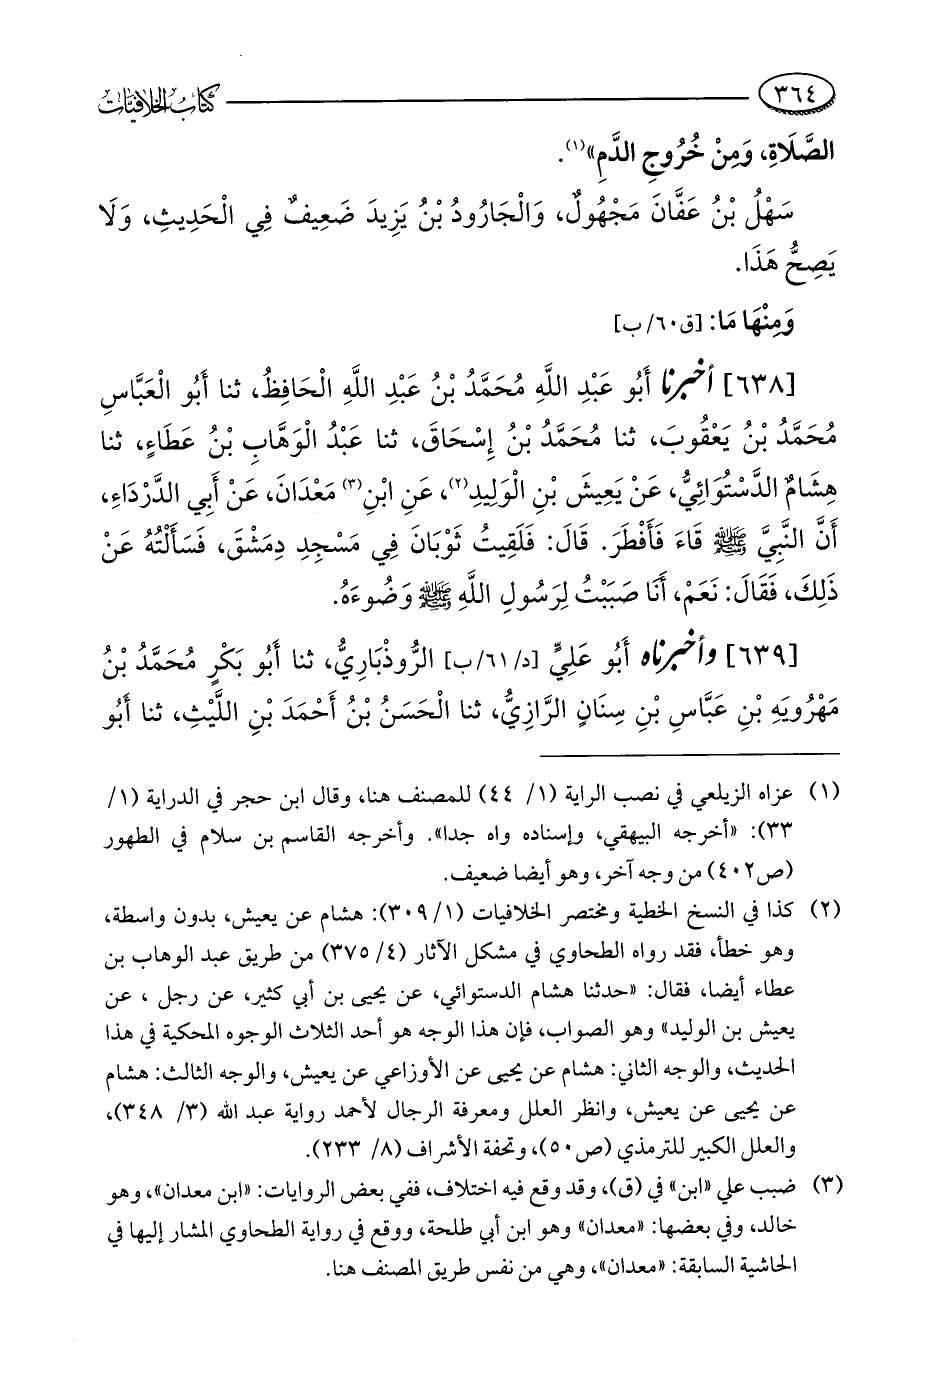 ٣٦٤ كتاب الخلافيات
الصَّلَاةِ، وَمِنْ خُرُوجِ الدَّمِ»(١).
سَهْلُ بْنُ عَفَّانَ مَجْهُولٌ، وَالْجَارُودُ بْنُ يَزِيدَ ضَعِيفٌ فِي الْحَدِيثِ، وَلَا
يَصِحُّ هَذَا.
وَمِنْهَا مَا: [ق٦٠/ب]
[٦٣٨] أخبرنا أَبُو عَبْدِ اللَّهِ مُحَمَّدُ بْنُ عَبْدِ اللَّهِ الْحَافِظُ، ثنا أَبُو الْعَبَّاسِ
مُحَمَّدُ بْنُ يَعْقُوبَ، ثنا مُحَمَّدُ بْنُ إِسْحَاقَ، ثنا عَبْدُ الْوَهَّابِ بْنُ عَطَاءٍ، ثنا
هِشَامٌ الدَّسْتُوَائِيُّ، عَنْ يَعِيشَ بْنِ الْوَلِيدِ(٢)، عَنِ ابْنِ(٣) مَعْدَانَ، عَنْ أَبِي الدَّرْدَاءِ،
أَنَّ النَّبِيَّ ﷺ قَاءَ فَأَفْطَرَ. قَالَ: فَلَقِيتُ ثَوْبَانَ فِي مَسْجِدِ دِمَشْقَ، فَسَأَلْتُهُ عَنْ
ذَلِكَ، فَقَالَ: نَعَمْ، أَنَا صَبَبْتُ لِرَسُولِ اللَّهِ ﷺ وَضُوءَهُ.
[٦٣٩] وأخبرناه أَبُو عَلِيٍّ [د/٦١/ب] الرُّوذْبَارِيُّ، ثنا أَبُو بَكْرٍ مُحَمَّدُ بْنُ
مَهْرُويَهِ بْنِ عَبَّاسِ بْنِ سِنَانٍ الرَّازِيُّ، ثنا الْحَسَنُ بْنُ أَحْمَدَ بْنِ اللَّيْثِ، ثنا أَبُو
(١) عزاه الزيلعي في نصب الراية (١/ ٤٤) للمصنف هنا، وقال ابن حجر في الدراية (١/
٣٣): «أخرجه البيهقي، وإسناده واه جدا». وأخرجه القاسم بن سلام في الطهور
(ص٤٠٢) من وجه آخر، وهو أيضا ضعيف.
(٢) كذا في النسخ الخطية ومختصر الخلافيات (٣٠٩/١): هشام عن يعيش، بدون واسطة،
وهو خطأ، فقد رواه الطحاوي في مشكل الآثار (٤/ ٣٧٥) من طريق عبد الوهاب بن
عطاء أيضا، فقال: «حدثنا هشام الدستوائي، عن يحيى بن أبي كثير، عن رجل ، عن
يعيش بن الوليد» وهو الصواب، فإن هذا الوجه هو أحد الثلاث الوجوه المحكية في هذا
الحديث، والوجه الثاني: هشام عن يحيى عن الأوزاعي عن يعيش، والوجه الثالث: هشام
عن يحيى عن يعيش، وانظر العلل ومعرفة الرجال لأحمد رواية عبد الله (٣/ ٣٤٨)،
والعلل الكبير للترمذي (ص٥٠)، وتحفة الأشراف (٨/ ٢٣٣).
(٣) ضبب علي «ابن» في (ق)، وقد وقع فيه اختلاف، ففي بعض الروايات: «ابن معدان»، وهو
خالد، وفي بعضها: «معدان» وهو ابن أبي طلحة، ووقع في رواية الطحاوي المشار إليها في
الحاشية السابقة: «معدان»، وهي من نفس طريق المصنف هنا.